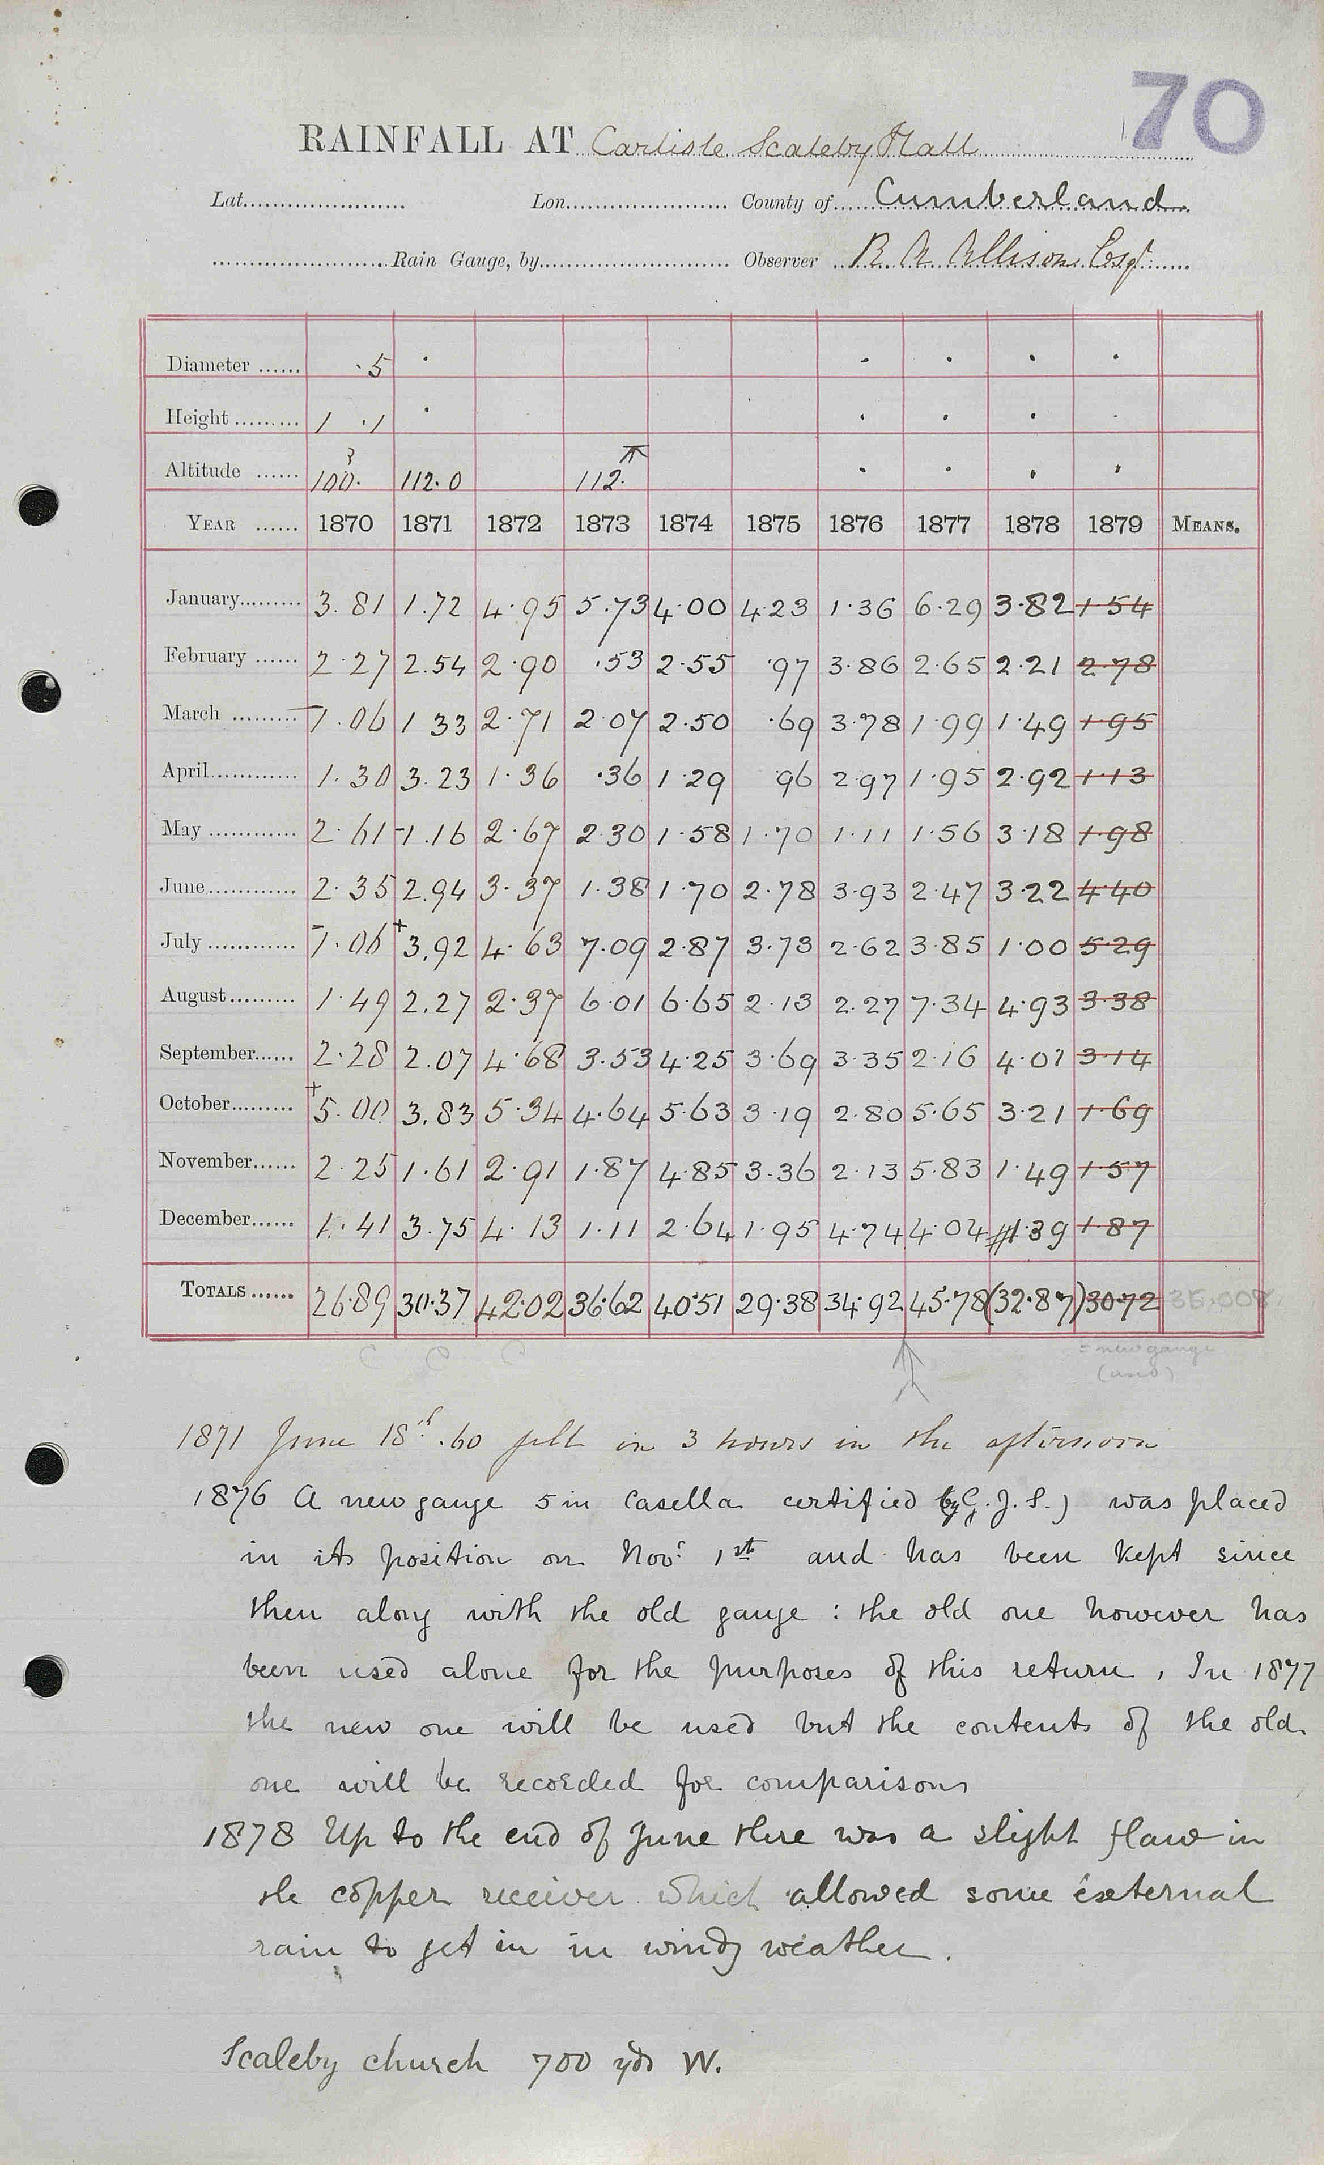 70
RAINFALL AT Carlisle Scaleby Hall
Lat. Lon. County of Cumberland
Rain Gauge, by Observer R A Allison Esqr
Diameter ...... .5 . . . . .
Height ......... 1 .1 . . . . .
Altitude ...... 100. 3 112.0 112. . . . .
YEAR ...... 1870 1871 1872 1873 1874 1875 1876 1877 1878 1879 MEANS.
January......... 3.81 1.72 4.95 5.73 4.00 4.23 1.36 6.29 3.82 1.54
February ...... 2.27 2.54 2.90 .53 2.55 .97 3.86 2.65 2.21 2.78
March ......... 1.06 1 33 2.71 2.07 2.50 .69 3.78 1.99 1.49 1.95
April............ 1.30 3.23 1.36 .36 1.29 96 2.97 1.95 2.92 1.13
May ............ 2.61 1.16 2.67 2.30 1.58 1.70 1.11 1.56 3.18 1.98
June............ 2.35 2.94 3.37 1.38 1.70 2.78 3.93 2.47 3.22 4.40
July ............ 1.06 + 3.92 4.63 7.09 2.87 3.73 2.62 3.85 1.00 5.29
August......... 1.49 2.27 2.37 6.01 6.65 2.13 2.27 7.34 4.93 3.38
September...... 2.28 2.07 4.68 3.53 4.25 3.69 3.35 2.16 4.01 3.14
October......... + 5.00 3.83 5.34 4.64 5.63 3.19 2.80 5.65 3.21 1.69
November...... 2.25 1.61 2.91 1.87 4.85 3.36 2.13 5.83 1.49 1.57
December...... 1.41 3.75 4.13 1.11 2.64 1.95 4.74 4.04 1.39 1.87
TOTALS...... 26.89 30.37 42.02 36.62 40.51 29.38 34.92 45.78 (32.87) 30.72 35.008
C C C = new gauge
(used)
1871 June 18th .60 fell in 3 hours in the afternoon
1876 A new gauge 5 in Casella certified (by G.J.S.) was placed
in its position on Novr 1st and has been kept since
then along with the old gauge : the old one however has
been used alone for the purposes of this return, In 1877
the new one will be used but the contents of the old
one will be recorded for comparisons
1878 Up to the end of June there was a slight flaw in
the copper receiver which allowed some external
rain to get in in windy weather.
Scaleby church 700 yds W.